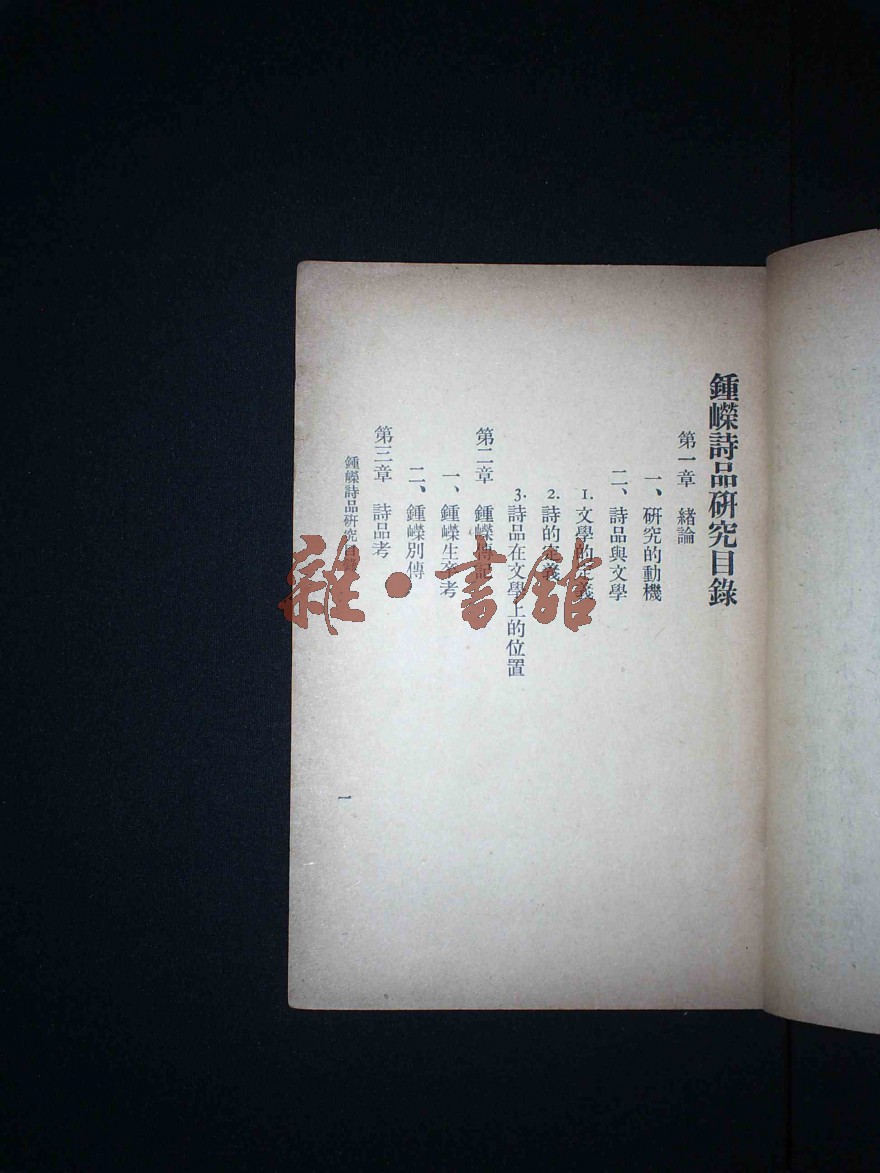 鍾嶸詩品研究目錄
第一章　緒論
一、研究的動機
二、詩品與文學
1.文學的定義
2.詩的定義
3.詩品在文學上的位置
第二章　鍾嶸傳記
一、鍾嶸生卒考
二、鍾嶸別傳
第三章　詩品考
鍾嶸詩品研究目錄
一
雜·書舘